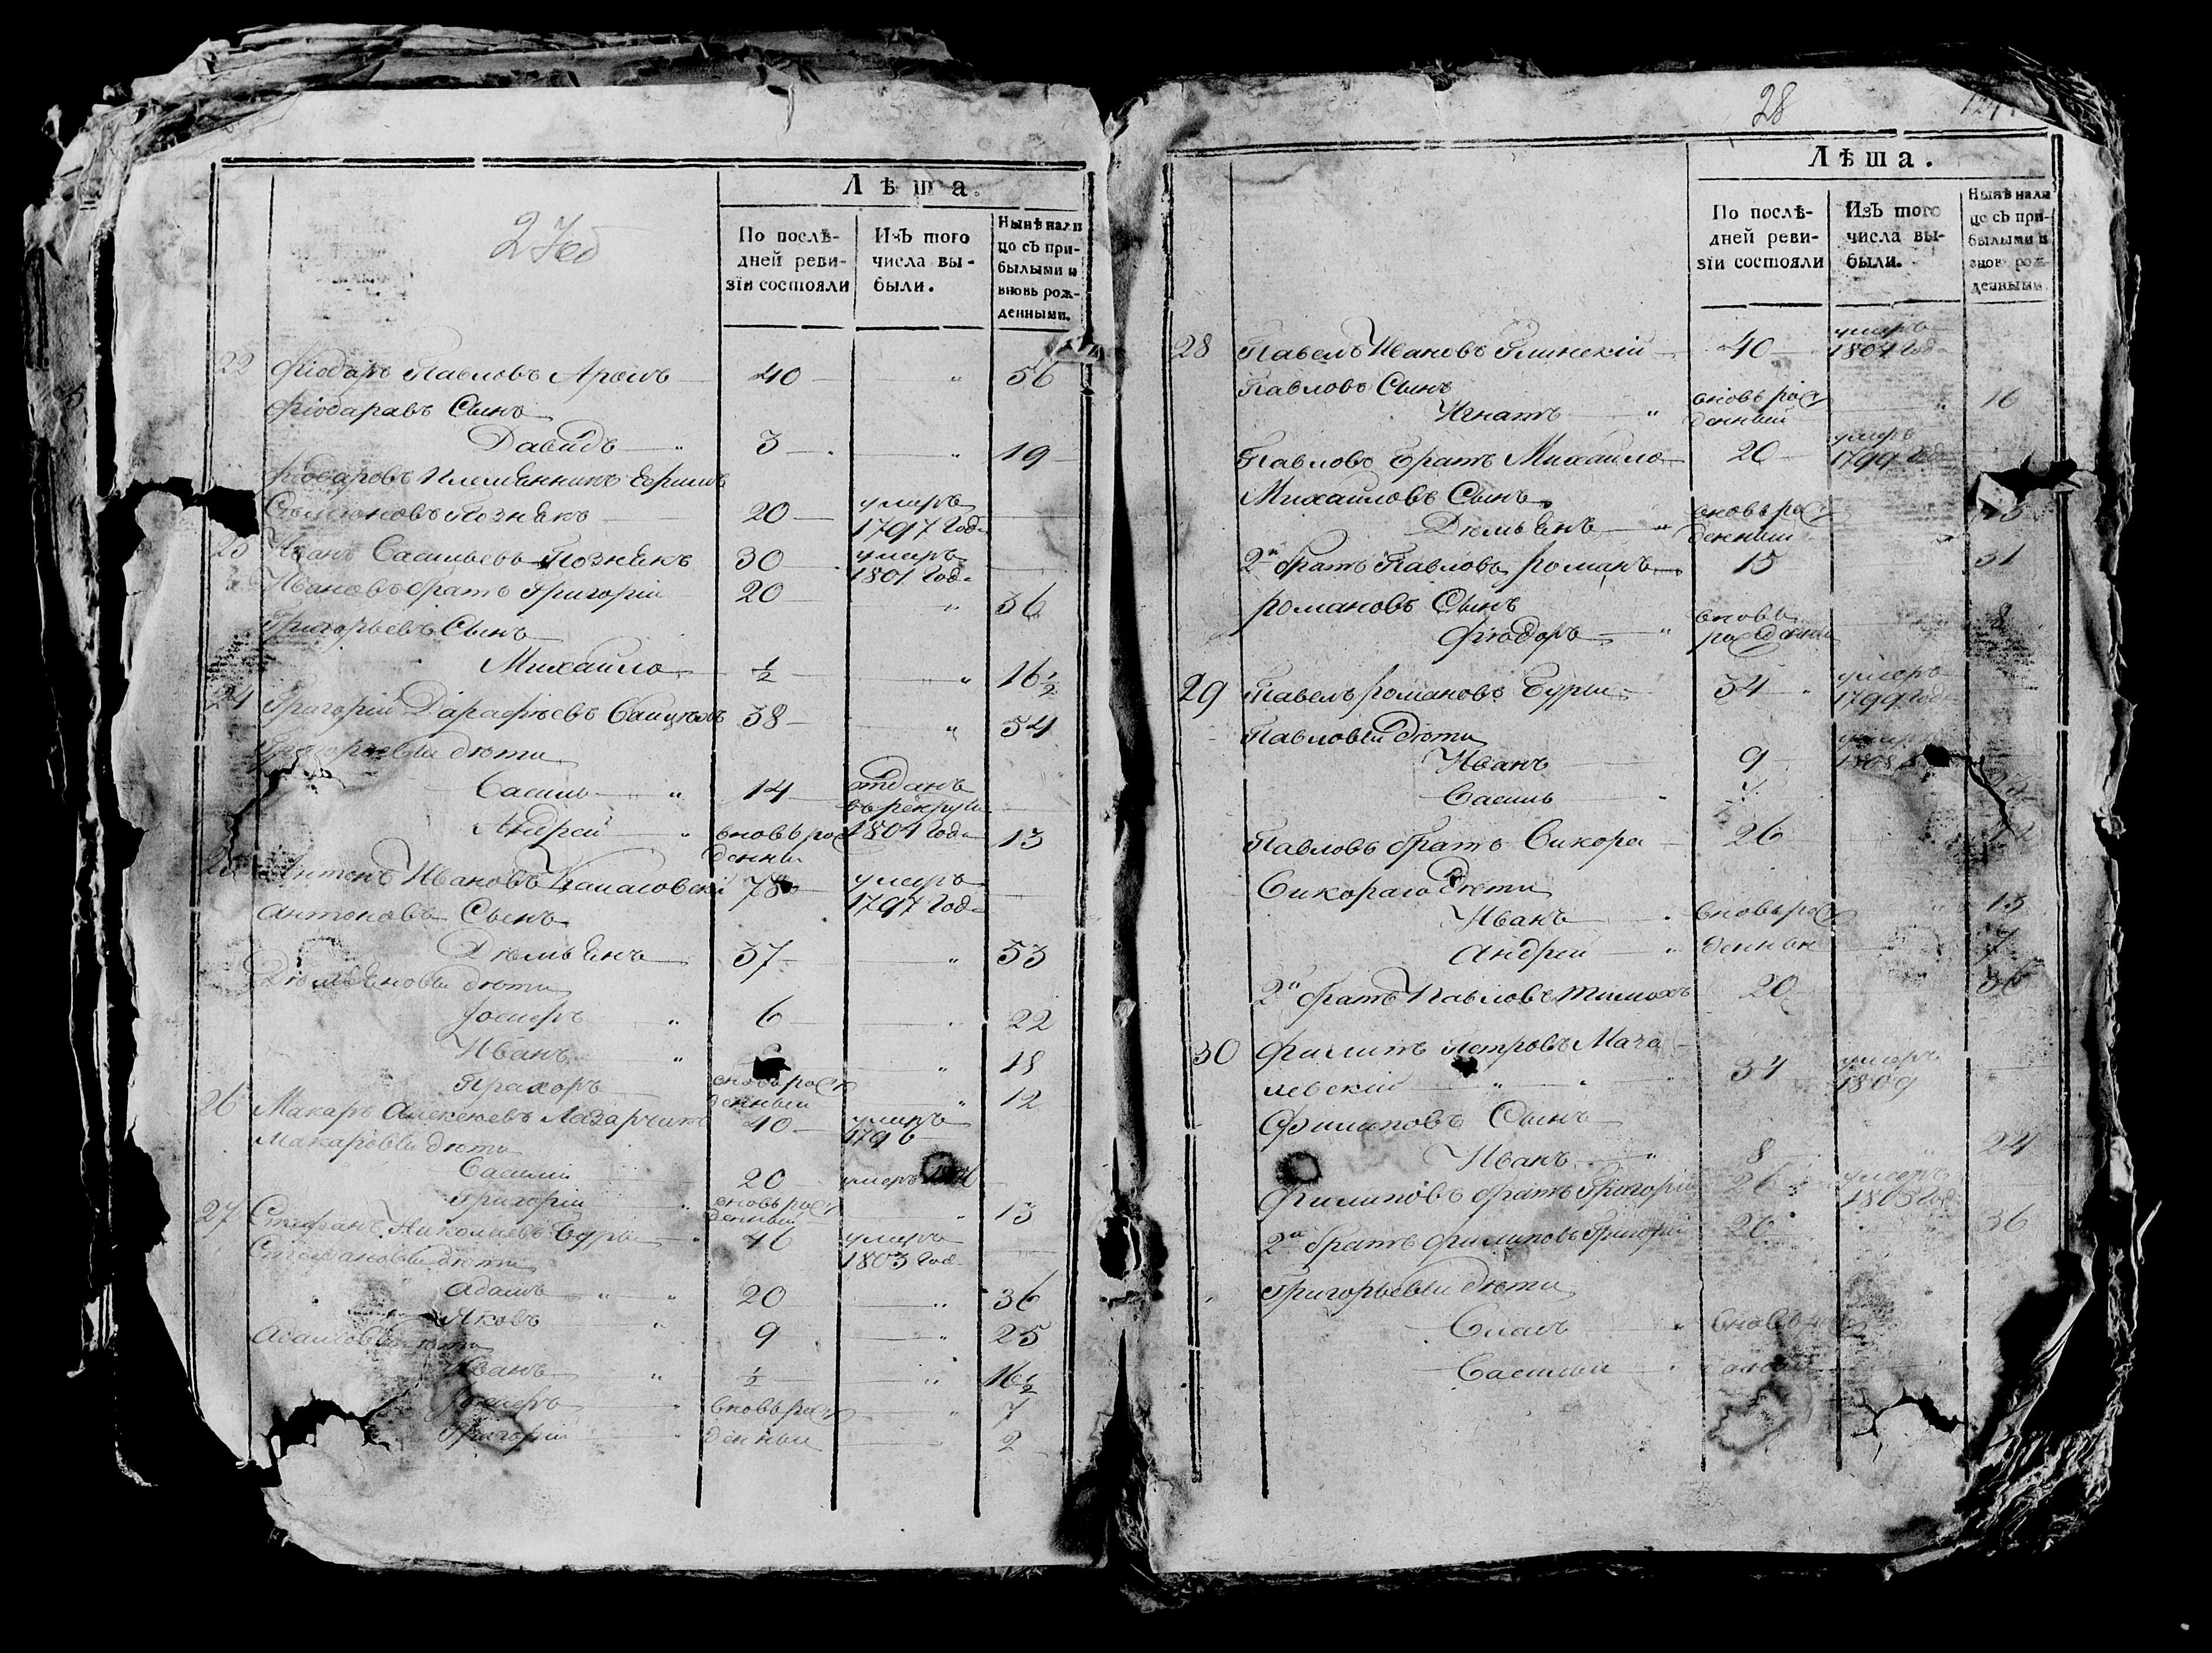 27об
Лѣта.
По послѣ-
дней реви-
зіи состояли
Изъ того
числа вы-
были.
Нынѣ нали
цо съ при-
былыми и
вновь рож-
денными.
22 Фіодоръ Павловъ 40 — „ 56
Фіодаравъ Сынъ
Давидъ — „ 3 — „ 19
Фіодаровъ племенникъ Ефримъ
Позненкъ 20 — умеръ 1797 года
23 Иванъ Васильевъ Позненкъ 30 — умеръ 1801 года
Ивановъ братъ Григорій 20 — „ 36
Григорьевъ Сынъ
Михайло ½ — „ 16½
24 Григорій Дарафѣевъ 38 — „ 54
Григорьевы дѣти
Василь — „ 14 — отданъ въ рекруты 1804 года
Андрей — „ вновь рож денны 13
Антонъ Ивановъ 78 — умеръ 1797 года
Антоновъ Сынъ
Дѣмьенъ 37 — „ 53
Дѣмьеновы дѣти
Іосифъ „ 6 — „ 22
Иванъ „ „ 18
Прахоръ вновь рож денный „ 12
26 Макаръ Алексеевъ Лазарчикъ 40 — умеръ 1796
Макаровы дѣти
Василій 20 умеръ
Григорій „ вновь рож денный „ 13
27 Стефанъ Николаевъ Бурый 46 умеръ 1803 год
Стефановы дѣти
Адамъ — „ 20 — „ 36
Яковъ „ 9 — „ 25
Адамовы дѣти
Иванъ „ ½ — „ 16½
Іосифъ „ вновь рож „ 7
Григорій денные 2
28
Лѣта.
По послѣ-
дней реви-
зіи состояли
Изъ того
числа вы-
были.
Нынѣ нали
цо съ при-
былыми и
вновь рож-
денными.
28 Павелъ Ивановъ Глинскій — 40 — умеръ 1804 года
Павловъ Сынъ
Игнатъ — „ вновь рож денный „ 16
Павловъ братъ Михайло 20 — умеръ 1799 года
Михайловъ Сынъ
Дѣмьенъ — „ вновь рож денный
2й братъ Павловъ романъ — 15 31
романовъ Сынъ
Фіодоръ — „ вновь рожденный 8
29 Павелъ романовъ Бурый 34 — умеръ 1799 года
Павловы дѣти
Иванъ 9 умеръ
Василь
Павловъ братъ Сикора — 26
Сикораго дѣти
Иванъ вновь рож „ 13
Андрей — „ денные 7
2й братъ Павловъ тимохъ 20 36
30 Филипъ Петровъ Мача-
левскій „ „ 34 умеръ 1809
Филиповъ Сынъ
Иванъ „ 8 „ 24
Филиповъ братъ Григорій 26 умеръ 1805 год
2й братъ Филиповъ Григорій 20 36
Григорьевы дѣти
вновь рож
Василій